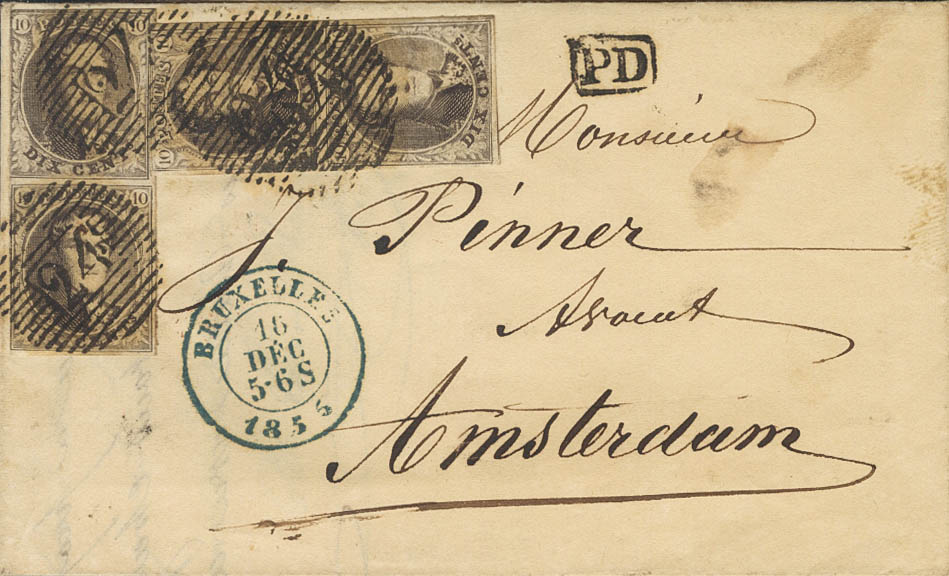 10 10
DIX CENT
POSTES
10
DIX C
ENTS
10
24
PD
Monsieur
J. Pinner
Avocat
Amsterdam
BRUXELLES
16
DÉC
5-6S
1855